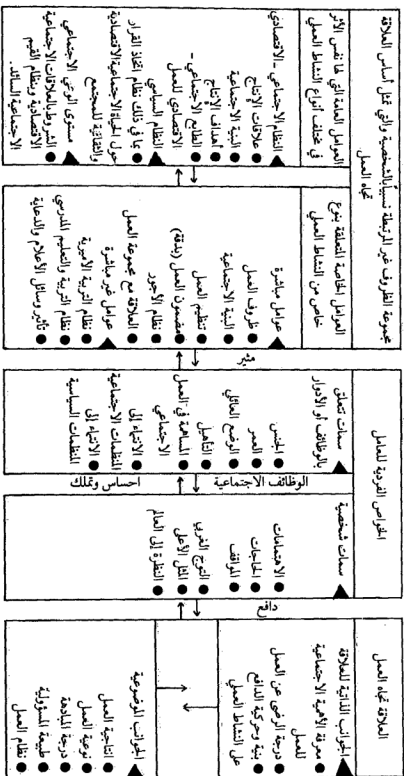 مجموعة الظروف غير المرتبطة نسبياً بالشخصية والتي تمثل أساس العلاقة
تجاه العمل
العوامل العامة التي لها نفس الأثر
في مختلف أنواع النشاط العملي
النظام الاجتماعي - الاقتصادي
علاقات الإنتاج
البنية الاجتماعية
أهداف الإنتاج
الطابع الاجتماعي -
الاقتصادي للعمل
النظام السياسي
بما في ذلك نظام اتخاذ القرار
حول الحياة الاجتماعية الاقتصادية
والثقافية للمجتمع
مستوى الوعي الاجتماعي
المشروط بالعلاقات الاجتماعية
الاقتصادية وبنظام القيم
الاجتماعية السائد.
العوامل الخاصة المتعلقة بنوع
خاص من النشاط العملي
عوامل مباشرة
ظروف العمل
البنية الاجتماعية
تنظيم العمل
مضمون العمل (بدقة)
نظام الأجور
العلاقة مع مجموعة العمل
عوامل غير مباشرة
نظام التربية الأسرية
نظام التربية والتعليم المدرسي
تأثير وسائل الأعلام والدعاية
الخواص الفردية للعامل
سمات تتعلق
بالوظائف أو الأدوار
الجنس
العمر
الوضع العائلي
التأهيل
المساهمة في العمل
الاجتماعي
الانتماء إلى
المنظمات الاجتماعية
الانتماء إلى
المنظمات السياسية
الوظائف الاجتماعية
احساس وتملك
سمات شخصية
الاهتمامات
الحاجات
المواقف
المثل الأعلى
النظرة إلى العالم
دافع
العلاقة تجاه العمل
الجوانب الذاتية للعلاقة
معرفة الأهمية الاجتماعية
للعمل
درجة الرضى عن العمل
بنية وحركية الدافع
على النشاط العملي
الجوانب الموضوعية
انتاجية العمل
نوعية العمل
درجة المبادهة
طبيعة المسؤولية
نظام العمل